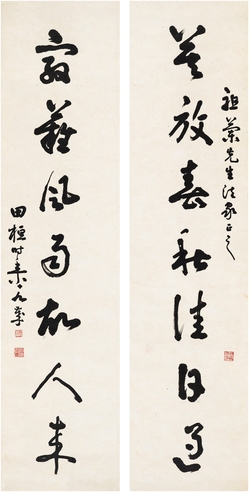 祖蘭先生法家正之
莫放春秋佳日過
最難風雨故人來
田桓時年八十八